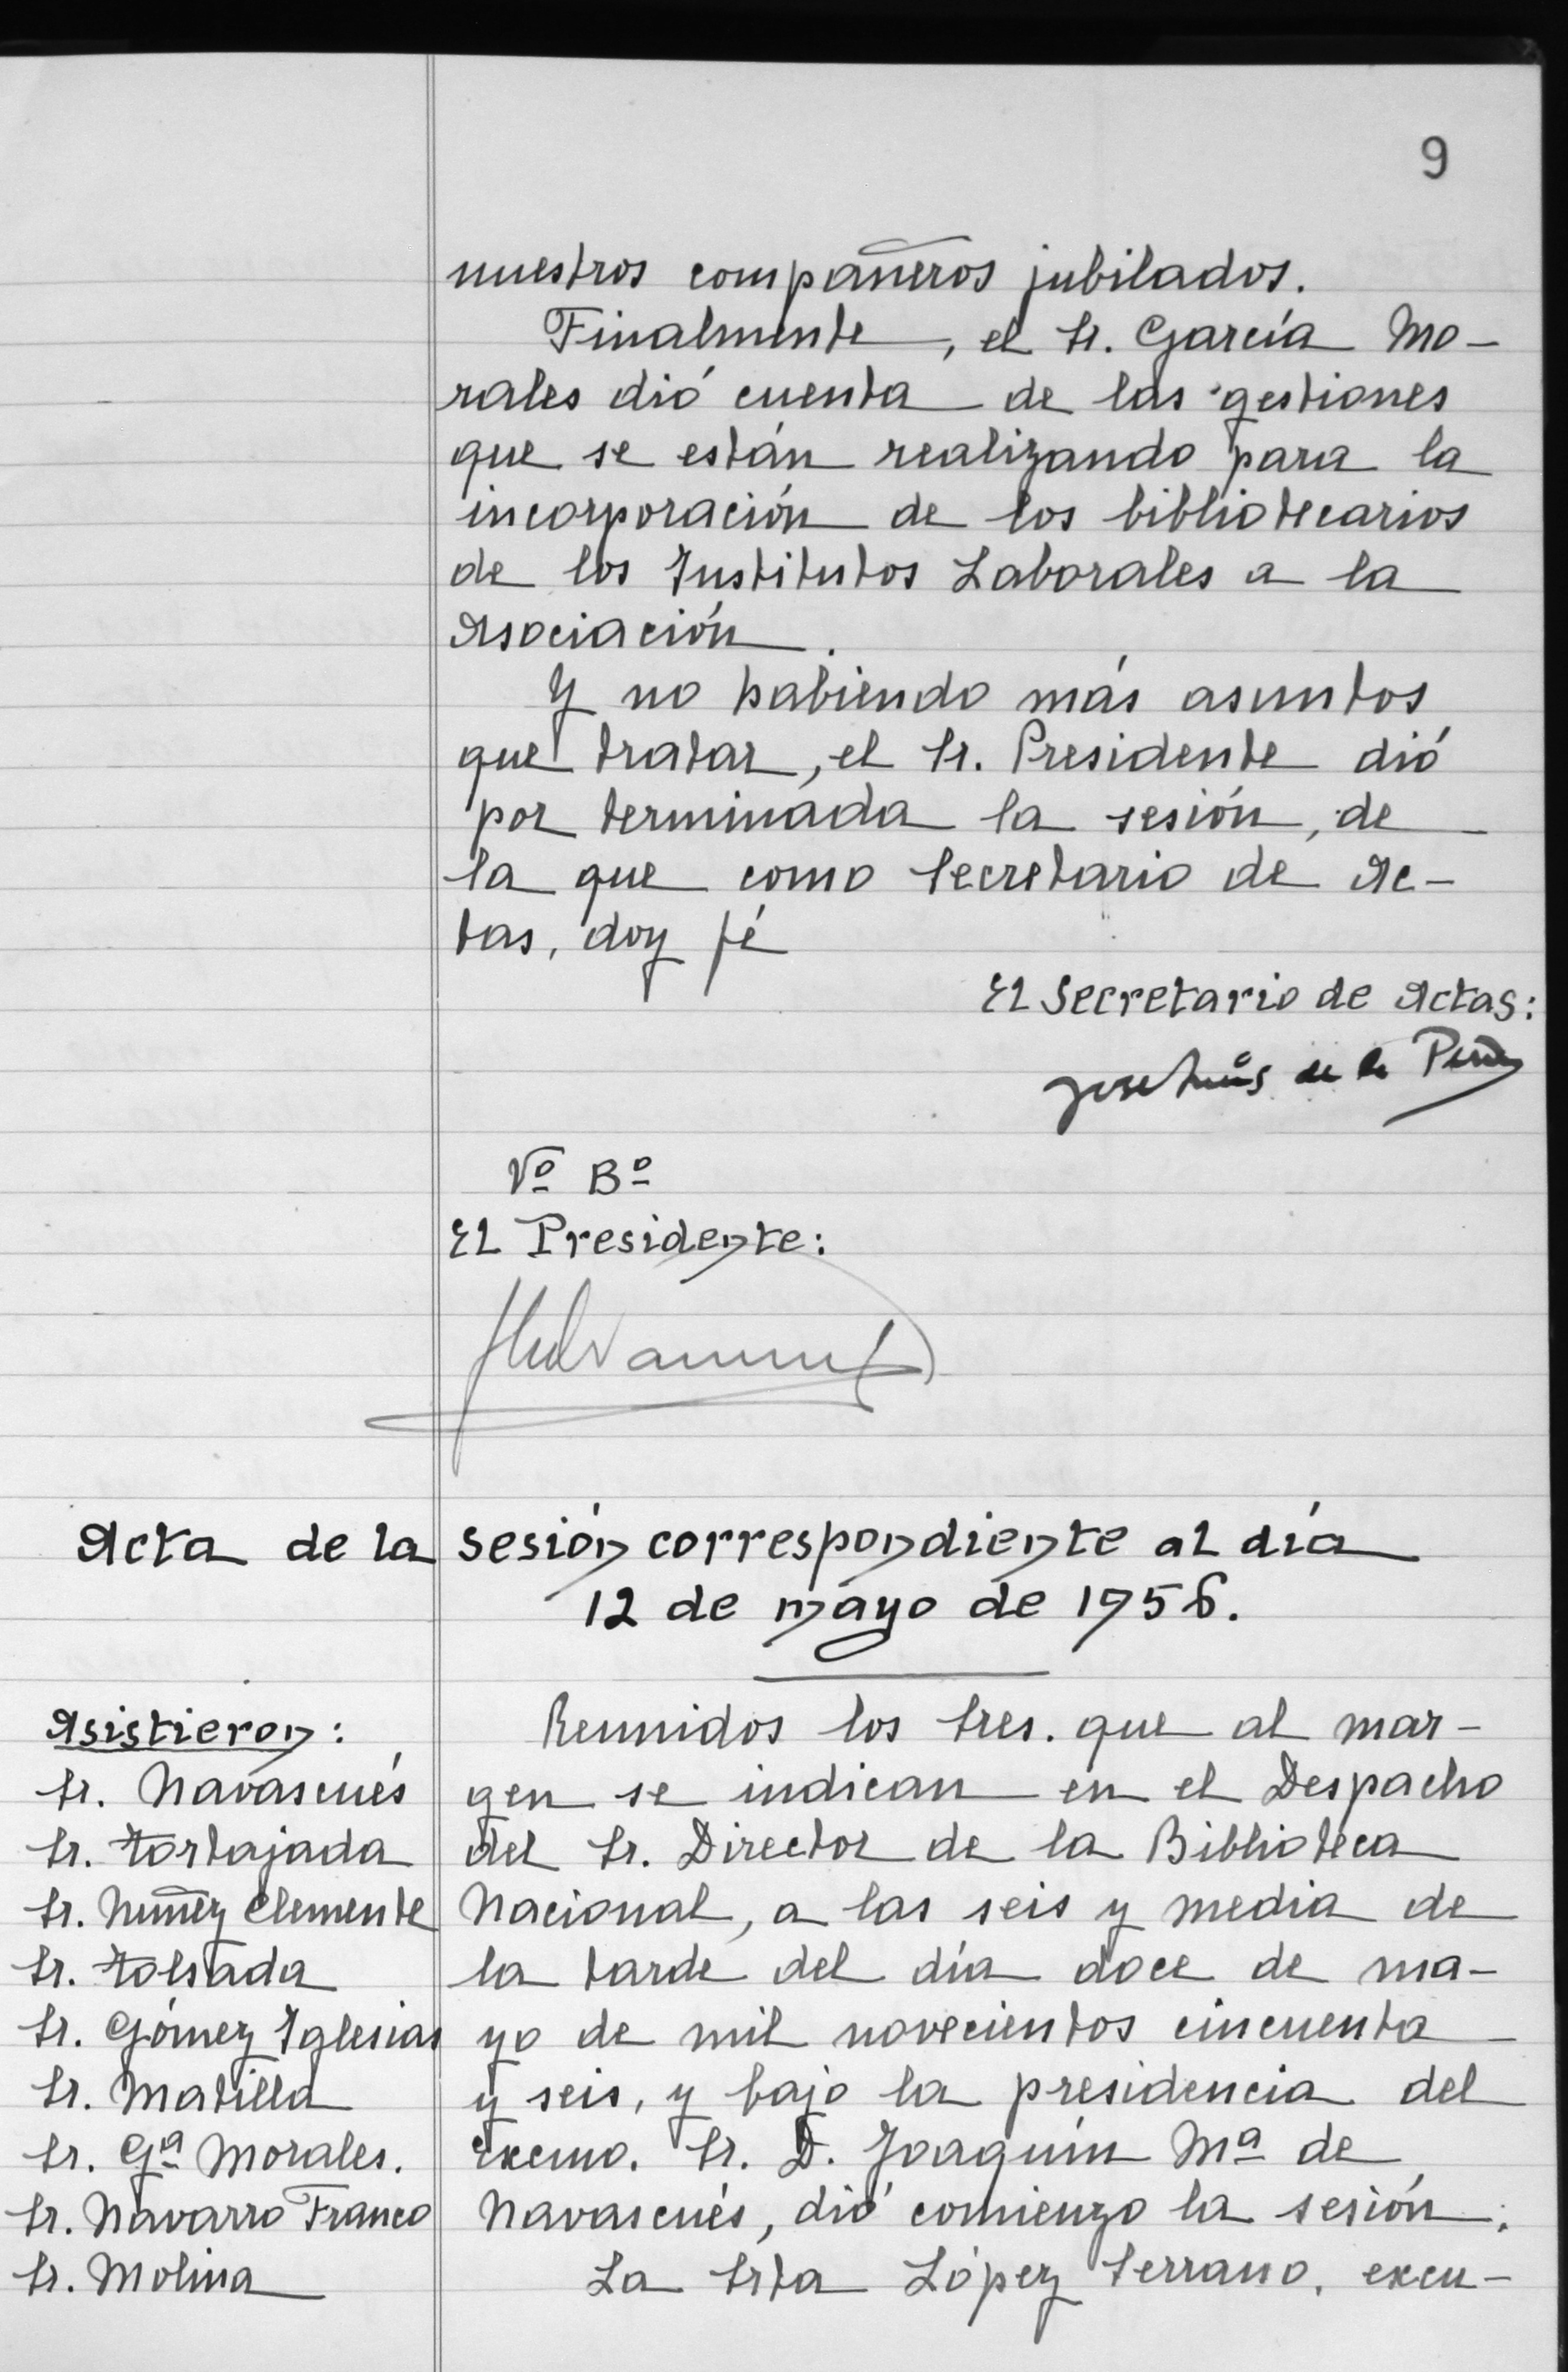 9
nuestros compañeros jubilados.
Finalmente, el Sr. García Mo-
rales dió cuenta de las gestiones
que se están realizando para la
incorporación de los bibliotecarios
de los Institutos Laborales a la
Asociación.
Y no habiendo más asuntos
que tratar, el Sr. Presidente dió
por terminada la sesión, de
la que como Secretario de Ac-
tas, doy fé
El Secretario de Actas:
José Luis de la Peña
Vº Bº
El Presidente:
Acta de la sesión correspondiente al día
12 de mayo de 1956.
Asistieron:
Sr. Navascués
Sr. Tortajada
Sr. Nuñez Clemente
Sr. Tolsada
Sr. Gómez Iglesias
Sr. Matilla
Sr. Gª Morales.
Sr. Navarro Franco
Sr. Molina
Reunidos los Sres. que al mar-
gen se indican en el Despacho
del Sr. Director de la Biblioteca
Nacional, a las seis y media de
la tarde del día doce de ma-
yo de mil novecientos cincuenta
y seis, y bajo la presidencia del
Excmo. Sr. D. Joaquín Mª de
Navascués, dió comienzo la sesión.
La Srta López Serrano, excu-